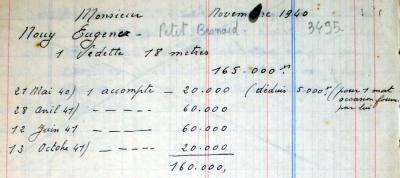 Monsieur Novembre 1940.
Nouy Eugene - Petit Brenaid 3495.
1 Vedette 18 metres
165.000 frs
21 Mai 40) 1 accompte — 20.000 (déduis 5.000 frs (pour 1 mat
28 Avril 41) — — — 60.000 occasion fourni
12 Juin 41 — — — 60.000 par lui
13 Octobre 41) — — — 20.000
160.000,